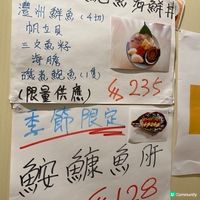 海鮮丼
澧州鮮魚(4切)
帆立貝
三文魚籽
海膽
磯煮鮑魚(1隻)
$235
(限量供應)
季節限定
鮟鱇魚肝
$128
U Community